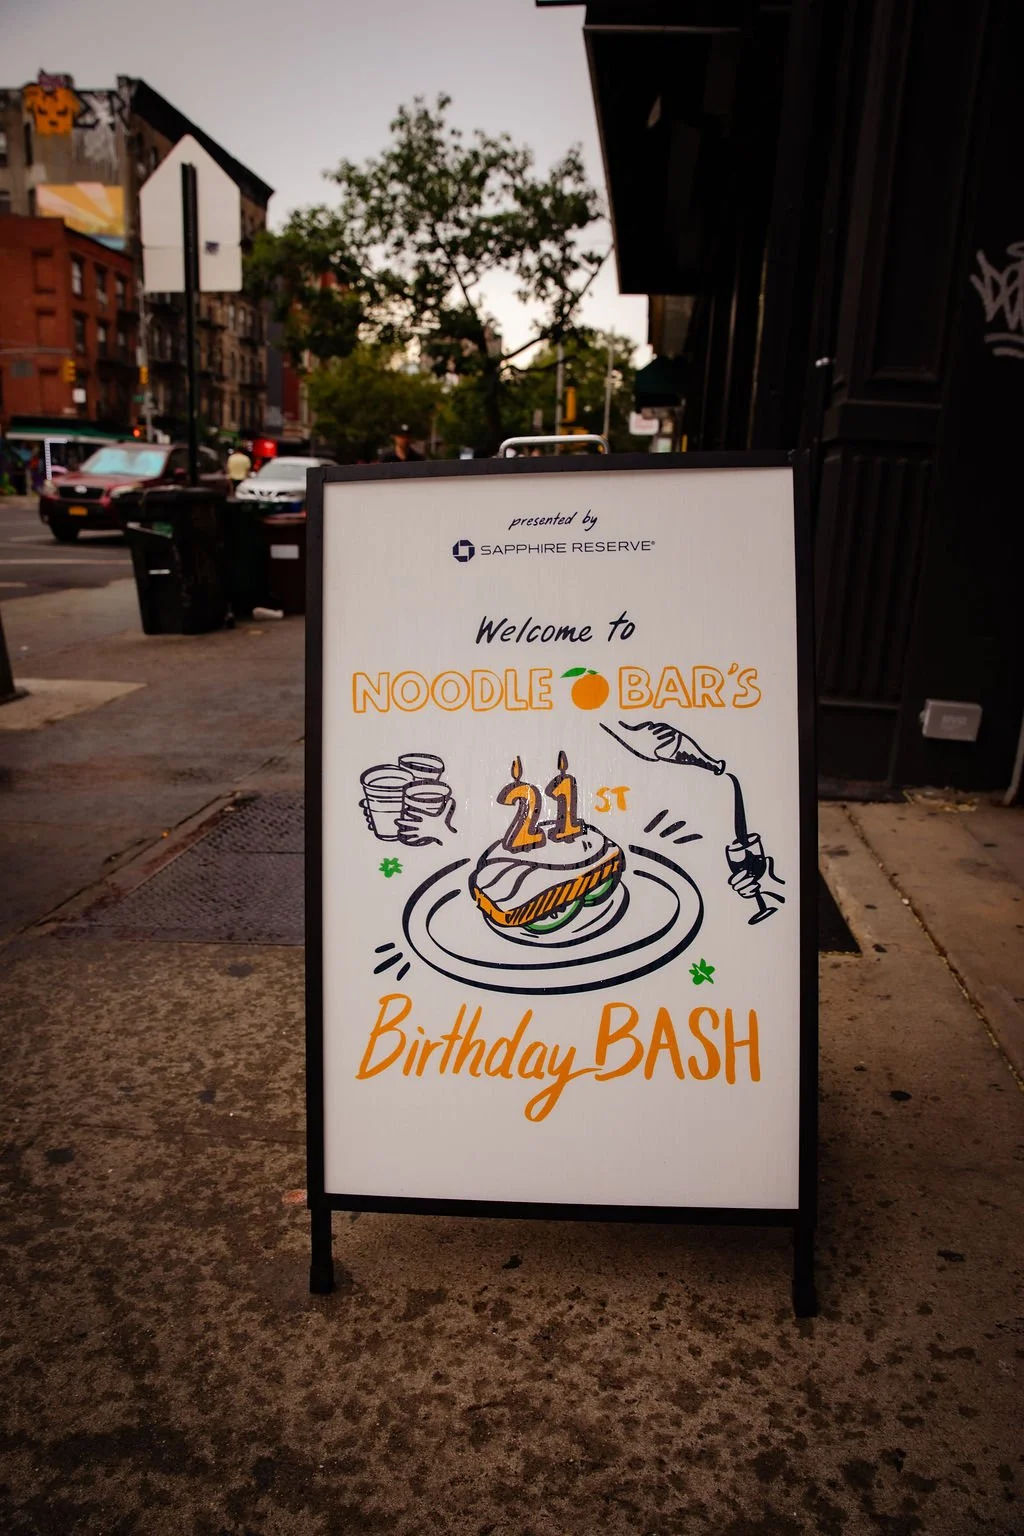 presented by
SAPPHIRE RESERVE®
Welcome to
NOODLE BAR'S
21ST
Birthday BASH